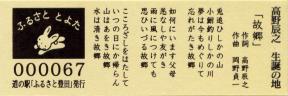 高野辰之 生誕の地
「故郷」
作詞 高野辰之
作曲 岡野貞一
兎追ひしかの山
小鮒釣りしかの川
夢は今もめぐりて
忘れがたき故郷
如何にいます父母
恙なしや友がき
雨に風につけても
思ひいづる故郷
こころざしをはたして
いつの日にか帰らん
山はあをき故郷
水は清き故郷
ふるさと とよた
000067
道の駅「ふるさと豊田」発行